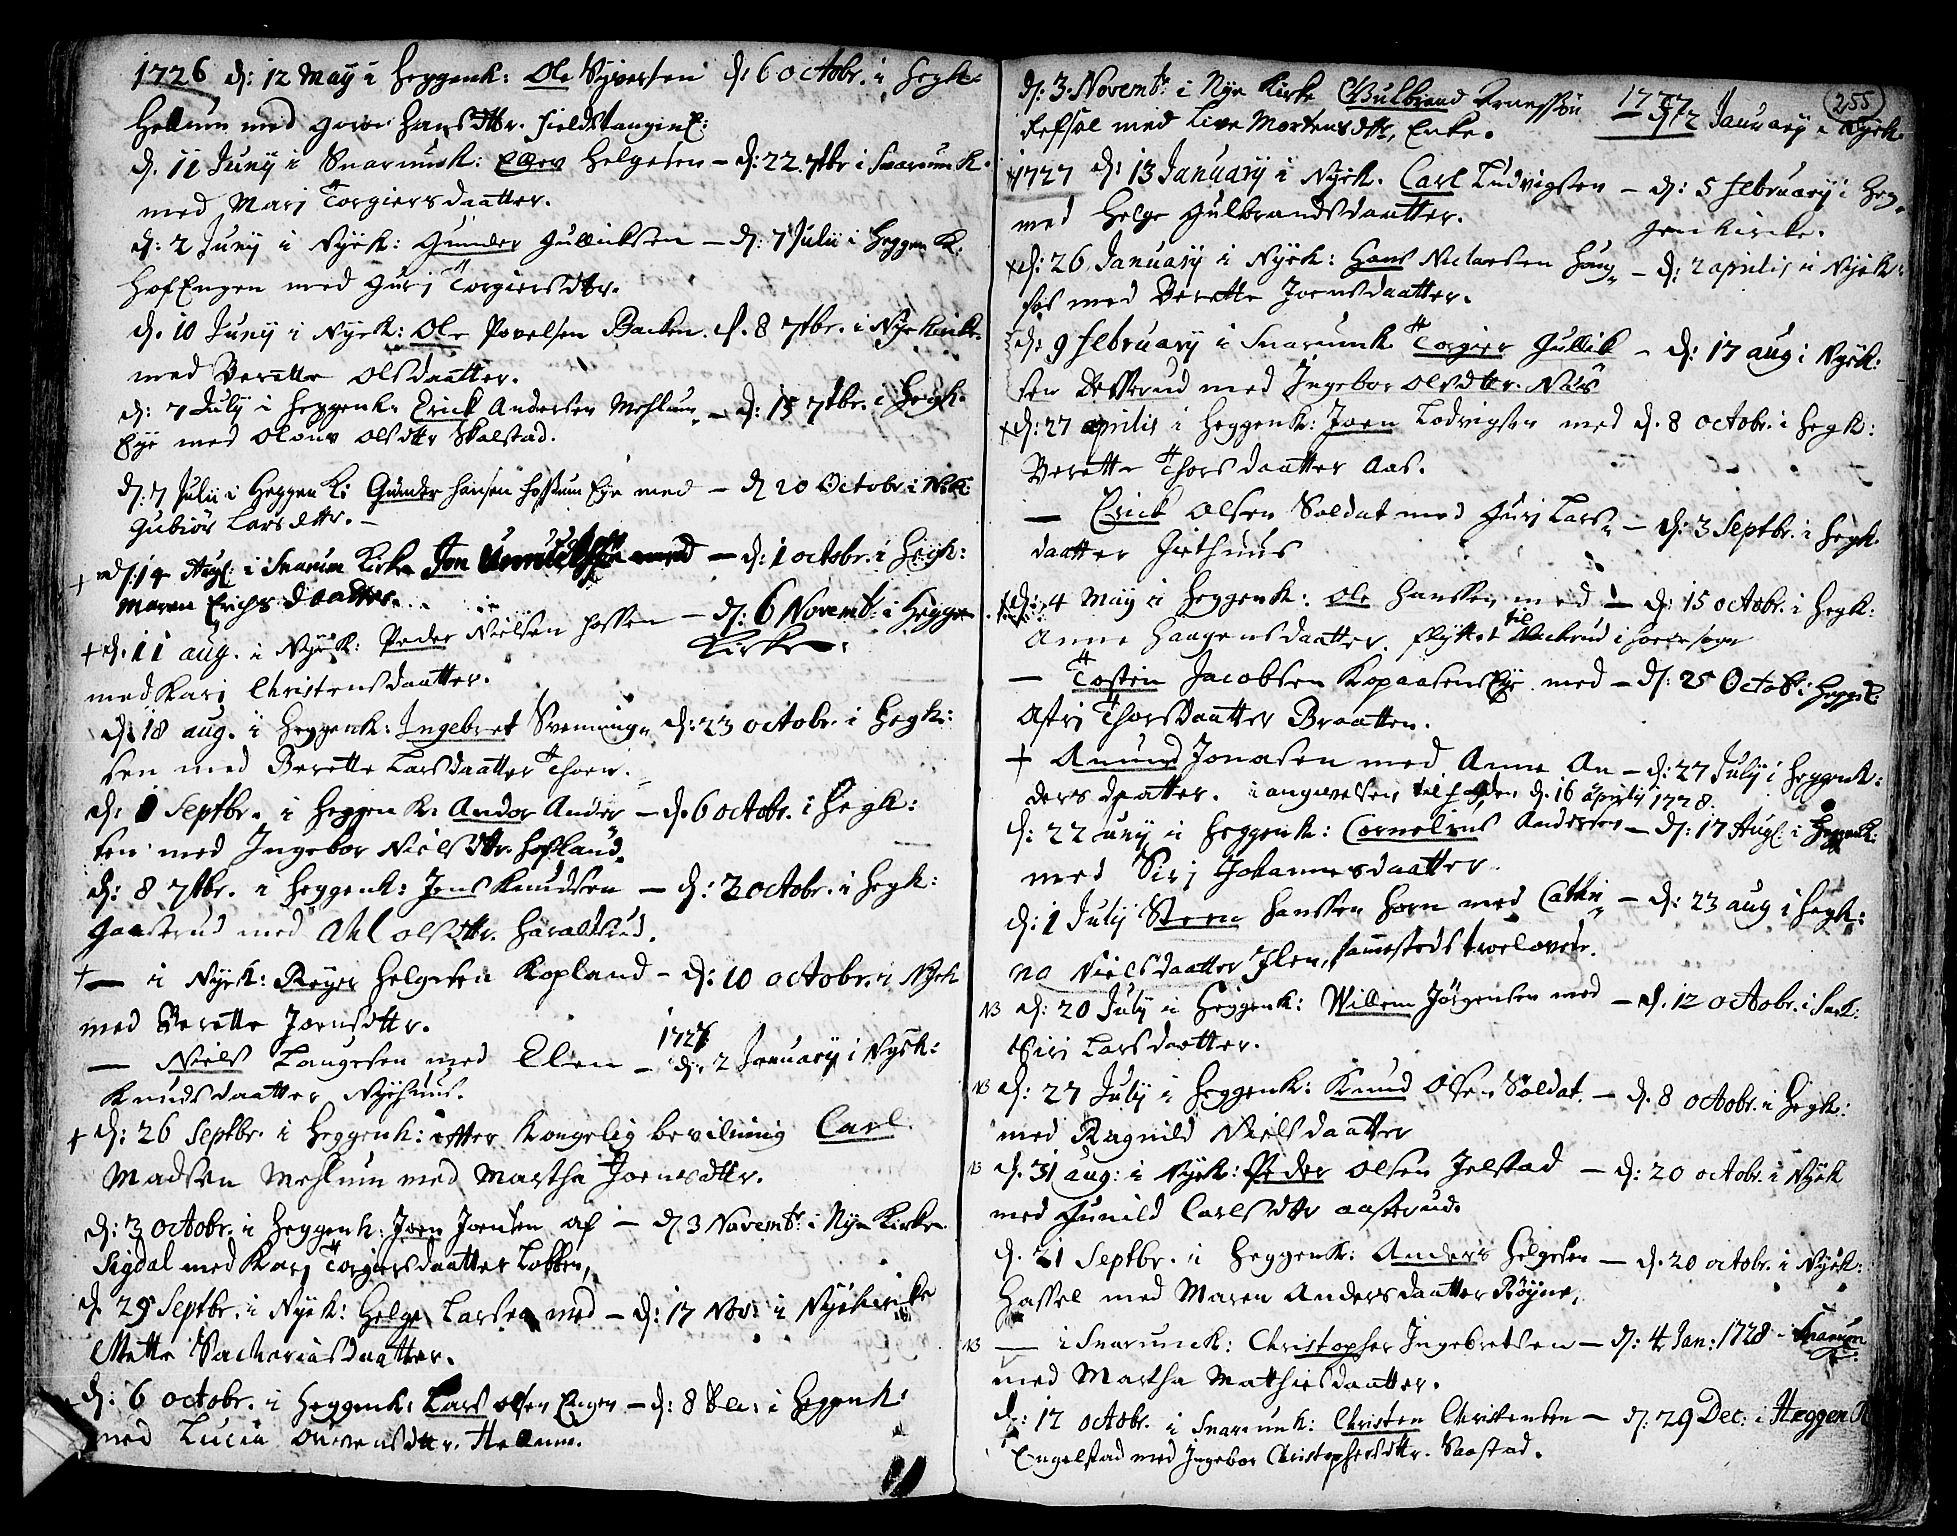 1726 d: 12 May i Heggenk: Ole Syversen d. 6 octobr. i Hegk:
Hellum med Hansdttr. Fieldstangen E:
d. 11 Juny i Snarumsk: Ellev Helgesen – d: 22. 7tbr i Snarumk.
med Marj Torgiersdaatter.
d: 2 Juny i Nyek: Gunder Gullicksen – d: 7 Julii i Heggen K.
HofEngen med Gurj Torgiersdttr.
d. 10 Juny i Nyek: Ole Povelsen Backen. d. 8 7tbr. i Nyekirke.
med Berette Olsdaatter.
d: 7 July i Heggenk. Erick Andersen Mehlum – d: 15 7tbr. i Hegk.
Eye med Oloug Olsdttr Skalstad.
d: 7 Julii i Heggen K: Gunder Hansen Hofsum Eye med – d 20 Octobr i Nyek:
Gubiør Larsdttr. –
+ d: 14 Aug: i Snarum Kirke Jon med – d: 1 octobr. i Hegk:
Maren Erichsdaatter.
+ d. 11 aug. i Nyek: Peder Nielsen Hossen – d: 6 Novembr: i Heggen
Kirke.
med Karj Christensdaatter.
d: 18 aug. i Heggenk: Ingebret Svenning= d: 23 octobr. i Hegk:
sen med Berette Larsdaatter Thoen.
d: 1 Septbr. i Heggen K: Andor Ander – d. 6 octobr. i Hegk:
sen med Ingebor Nielsdttr. Hofland.
d: 8 7tbr. i Heggenk: Jens Knudsen – d: 2 octobr. i Hegk:
Gaaserud med Ahl olsdttr. Haraldsrud.
+ — i Nyek: Reyer Helgesen Kopland – d: 10 octobr. i Nyek
med Berette Joensdttr.
— Niels Laugesen med Elen – 1727. d: 2 January i Nyek:
Knudsdaatter Nyehuus.
+ d: 26 Septbr. i Heggenk: efter Kongelig bevilning Carl
Madsen Mehlum med Martha Joensdttr.
d: 3 octobr. i Heggenk: Joen Joensen af – d 3 Novembr: i Nye Kirke.
Sigdal med Karj Torgiersdaatter Lobben,
d 29 Septbr. i Nyek: Helge Larsen med – d: 17 Nov: i Nyekirke
Mette Sachariasdaatter.
d: 6 octobr. i Heggenk: Lars olsen Engen – d: 8 Dec: i Heggenk:
med Lucia Hellum.
255
d: 3. Novembr: i Nye Kirke Gulbrand Arnessøn 1727 – d: 2 January i Nyek.
Refsal med Live Mortensdttr, Enke.
+ 1727 d: 13 January i Nyek. Carl Ludvigsen – d: 5 february i Heg=
gen kirke.
med Helge Gulbrandsdaatter.
+ d: 26 January i Nyek: Hans Nielsen Haug= – d: 2 aprilis i Nyek:
fos med Berette Joensdaatter.
d: 9 february i Snarumk Torgier Gullik – d: 17 aug i Nyek:
sen Defferud med Ingebor olsdttr. Næs
+ d: 27 aprilis i Heggenk: Joen Lodvigsen med d. 8 octobr. i Hegk:
Berette Thorsdaatter Aas.
— Erick olsen Soldat med Gurj Lars= – d: 3 Septbr. i Hegk.
daatter Giethuus
+ d: 4 May i Heggenk: Ole Hansen med – d: 15 octobr. i Hegk:
Anne Haagensdaatter. flyttet til i
— Tosten Jacobsen Kopaasen Eye med – d: 25 Octob: i Heggek:
Astri Thorsdaatter Braatten.
+ Anund Jonasen med Anne An – d: 27 Julij i Heggenk:
dersdaatter. i angivelsen d. 16 aprilij 1728.
d: 22 Juny i Heggenk: Cornelius Andersen – d: 17 Aug: i Heggenk:
med Sirj Johannesdaatter.
d: 1 July Steen Hanssen Horn med Cathri= – d: 23 aug i Hegk:
na Nielsdaatter Jlen, sammesteds trolovede.
NB d: 20 July i Heggenk: Willem Jörgensen med – d. 12 octobr. i Snk:
Siri Larsdaatter.
NB d: 27 July i Heggenk: Knud Olsen Soldat. – d. 8 octobr. i Hegk:
med Ragnild Nielsdaatter
NB d. 31 aug: i Nyek: Peder olsen Jelstad – d: 20 octobr. i Nyek
med Gunild Carlsdttr aaserud.
d. 21 Septbr. i Heggenk: Anders Helgesen – d. 20 octobr. i Nyek:
Hassel med Maren Andersdaatter Røyne,
NB — i Snarumk: Christopher Ingebretsen – d: 4 Jan: 1728 i Snarum
K:
med Martha Mathisdaatter.
d: 12 octobr. i Snarumk: Christen Christensen – d: 29 Dec: i Heggen K
Engelstad med Ingebor Christophersdttr. Saastad.